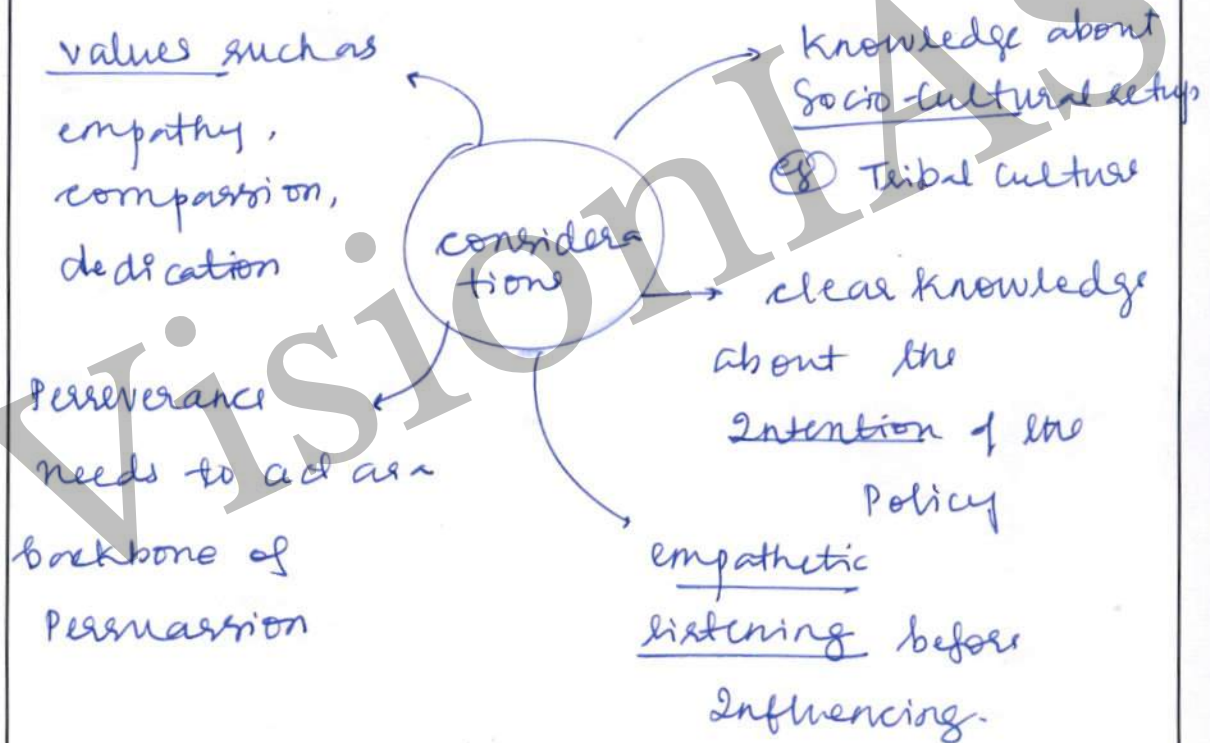 values such as
empathy,
compassion,
dedication
Knowledge about
Socio-Cultural setup
eg Tribal Culture
considera
tions
clear Knowledge
about the
Intention of the
Policy
Perseverance
needs to act as a
backbone of
Persuassion
empathetic
listening before
Influencing.
VisionIAS